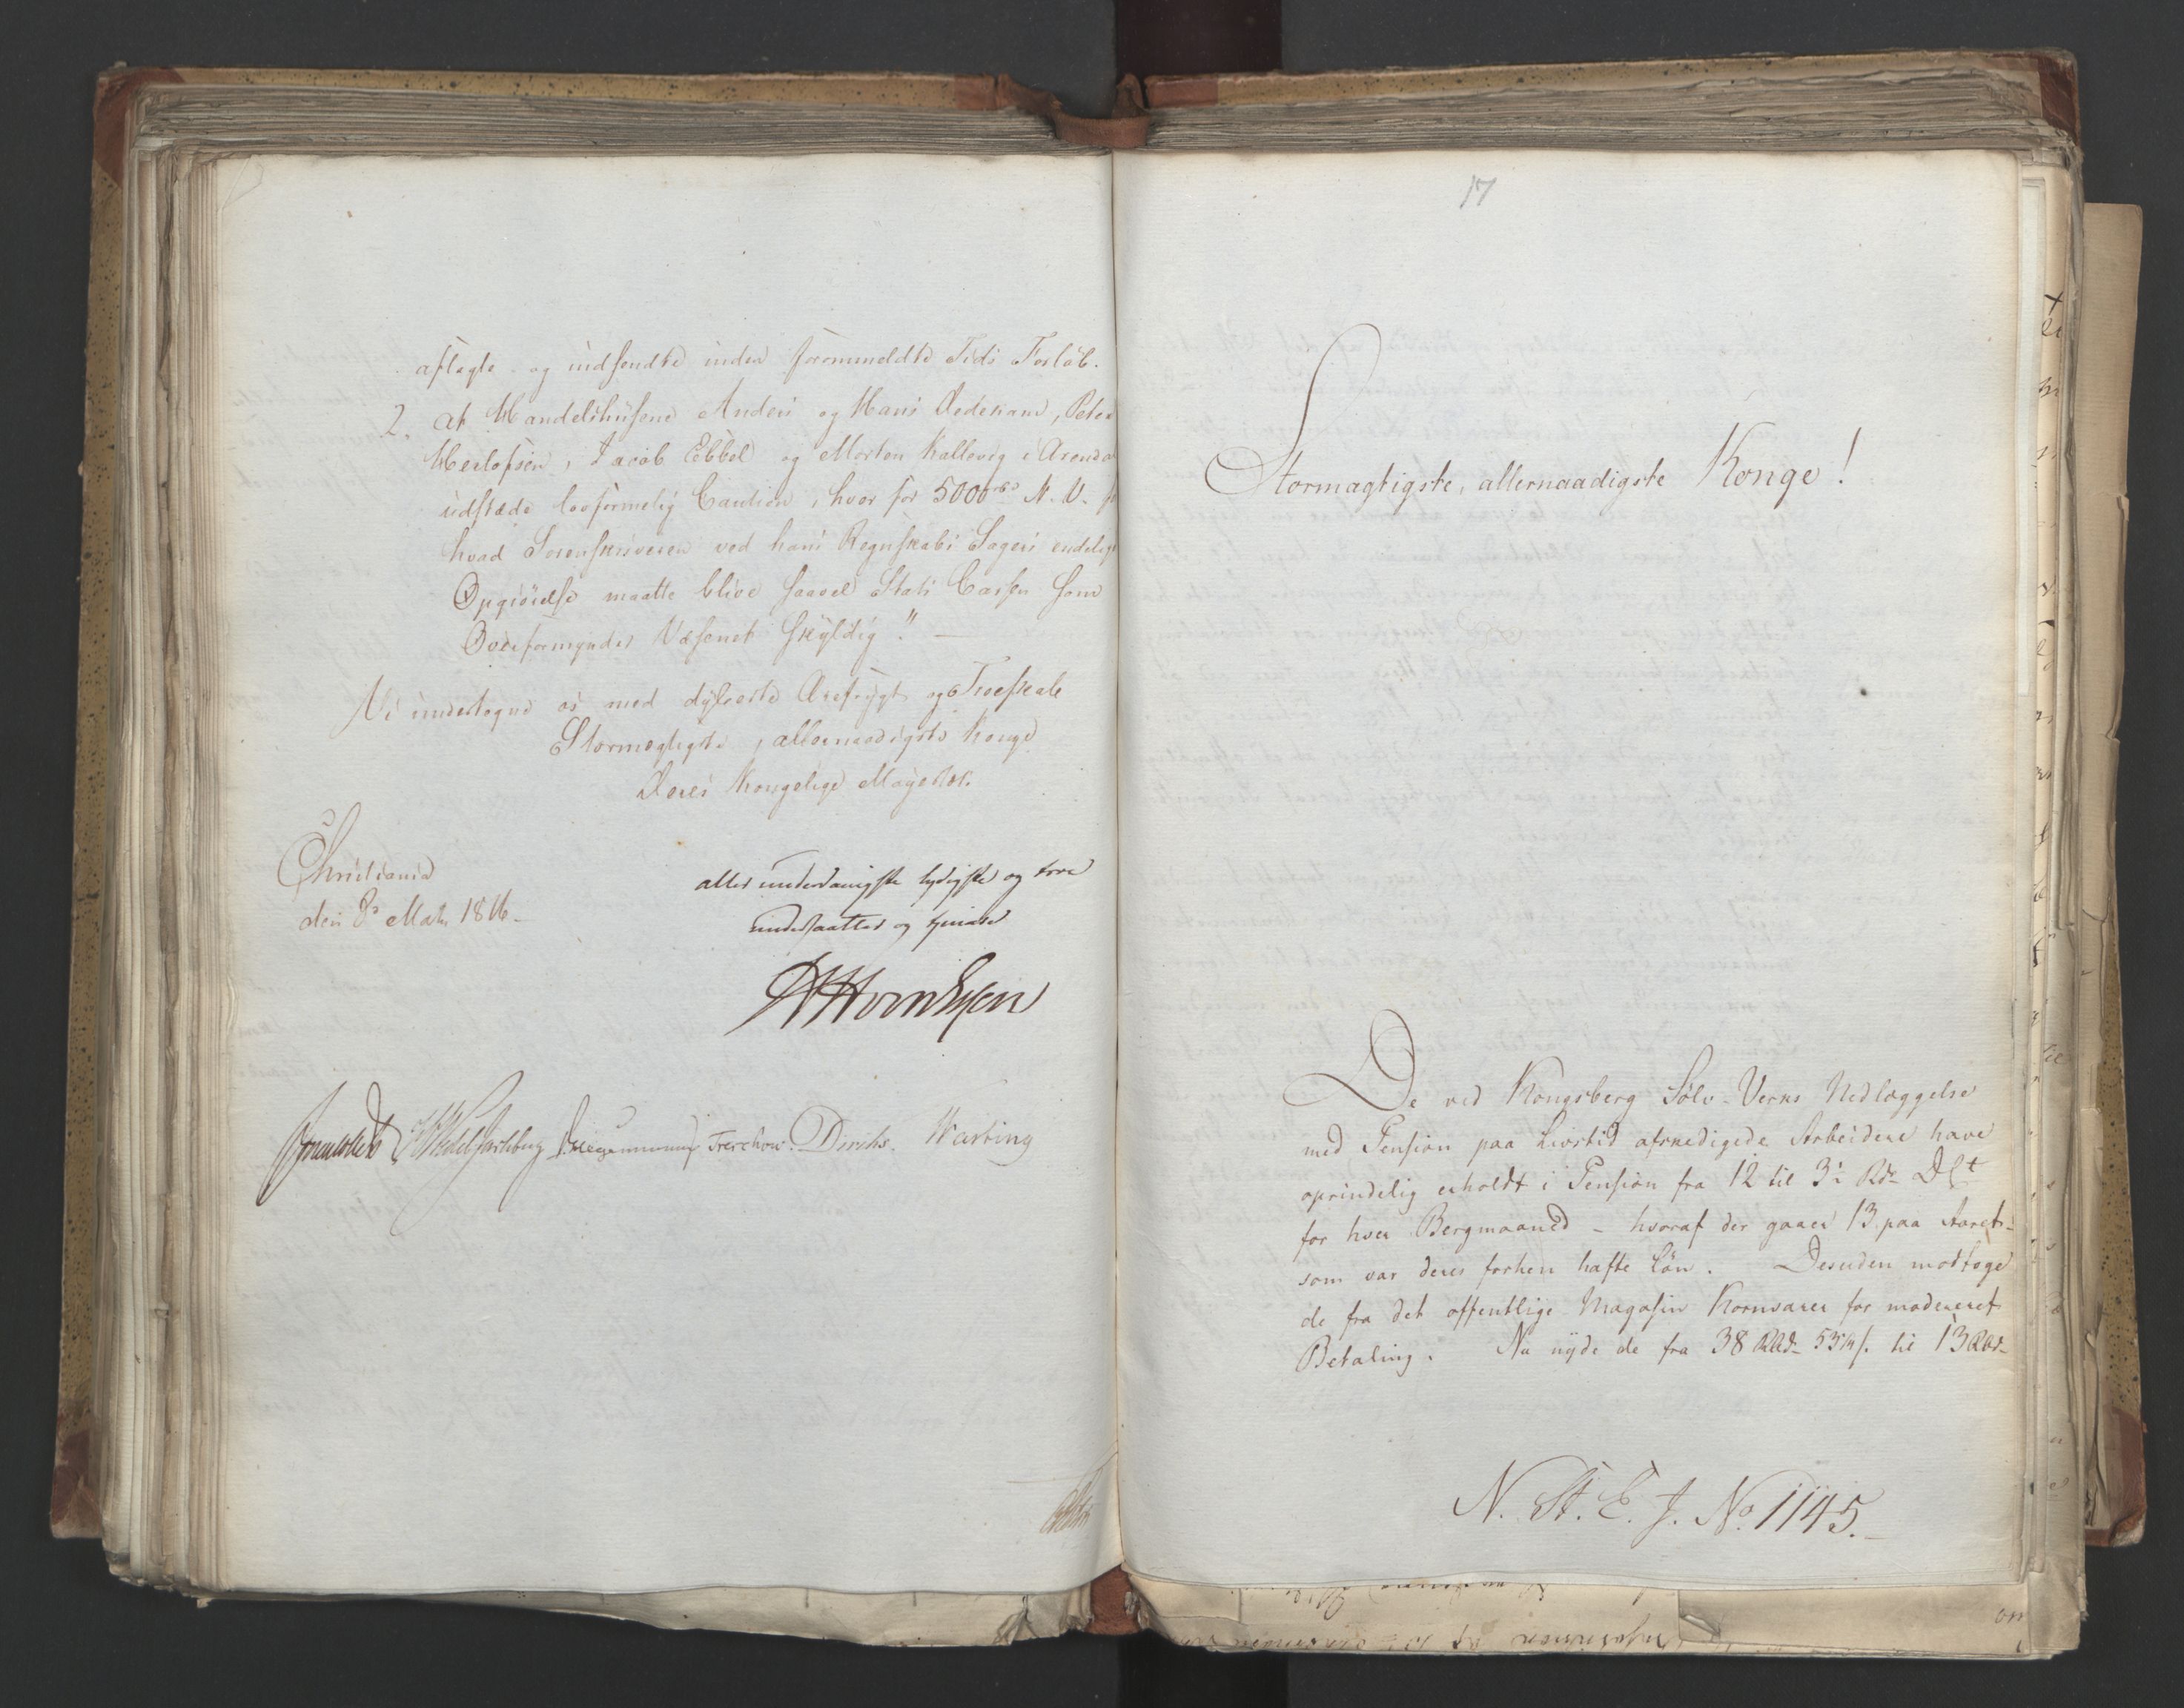 aflagte og indsendte inden formeldte Tids Forløb.
2. at Handelshusene Anders og Hans Dedekam, Peter
Herlofsen, Jacob Ebbel og Morten Kallevig i Arendal
udstæde lovformelig Caution, hver for 5000 rbd N. V. for
hvad Sorenskriveren ved hans Regnskabs Sagers endelige
Opgiörelse maatte blive saavel Stats Cassen som
Overformynder Væsenet skyldig." —
Vi undertegne os med dybeste Ærefrygt og Troeskab
Stormægtigste, allernaadigste Konge
Deres Kongelige Majestæts
Christiania
den 8de Marts 1816.
aller underdanigste lydigste og troe
undersaatter og tjenere
Sommerhielm Wedel Jarlsberg Krogh Treschow. Diriks. Hartving
17
Stormagtigste, allernaadigste Konge!
De ved Kongsberg Sölv-Verks Nedlæggelse
med Pension paa Livstid afskedigede Arbeidere have
oprindelig erholdt i Pension fra 12 til 3½ Rdr D Ct
for hver Bergmaaned - hvoraf der gaaer 13 paa Aaret -
som var deres forhen hafte Lön. Desuden modtoge
de fra det offentlige Magasin Kornvarer for modereret
Betaling. Nu nyde de fra 38 Rbd. 53 ¼ s. til 13 Rbd.
N. St. E. J. No. 1145.